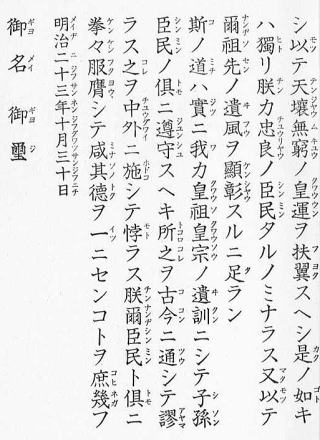 シ以テ天壤無窮ノ皇運ヲ扶翼スヘシ是ノ如キ
ハ獨リ朕カ忠良ノ臣民タルノミナラス又以テ
爾祖先ノ遺風ヲ顯彰スルニ足ラン
斯ノ道ハ實ニ我カ皇祖皇宗ノ遺訓ニシテ子孫
臣民ノ俱ニ遵守スヘキ所之ヲ古今ニ通シテ謬
ラス之ヲ中外ニ施シテ悖ラス朕爾臣民ト俱ニ
拳々服膺シテ咸其德ヲ一ニセンコトヲ庶幾フ
明治二十三年十月三十日
御名御璽